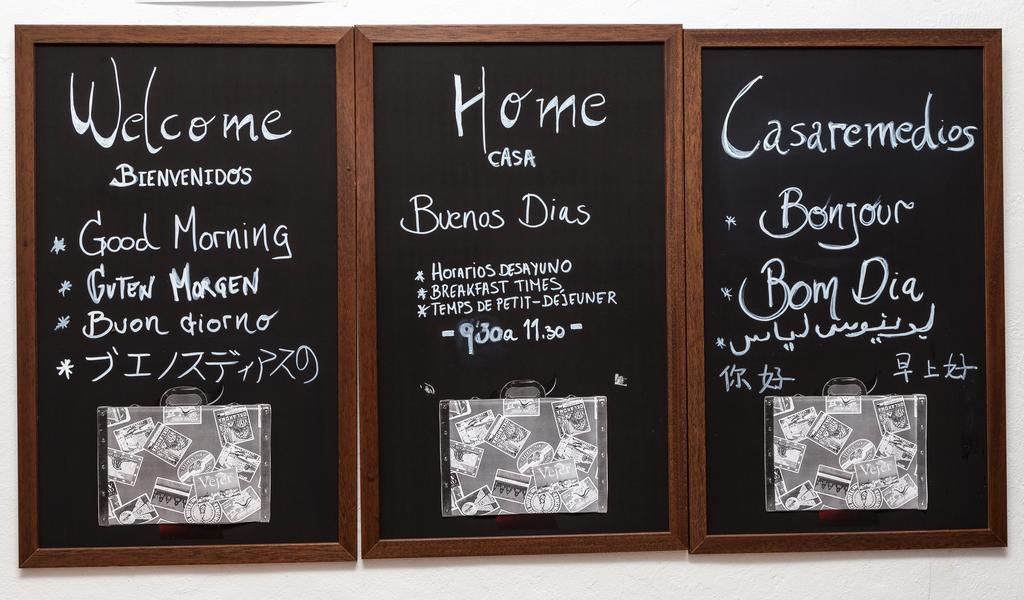 Welcome
BIENVENIDOS
* Good Morning
* GUTEN MORGEN
* Buon Giorno
* ブエノスディアスの
Vejer
Home
CASA
Buenos Dias
* HORARIOS DESAYUNO
* BREAKFAST TIMES
* TEMPS DE PETIT-DÉJEUNER
- 9:30 a 11.30 -
Vejer
Casaremedios
* Bonjour
* Bom Dia
你好 早上好
Vejer